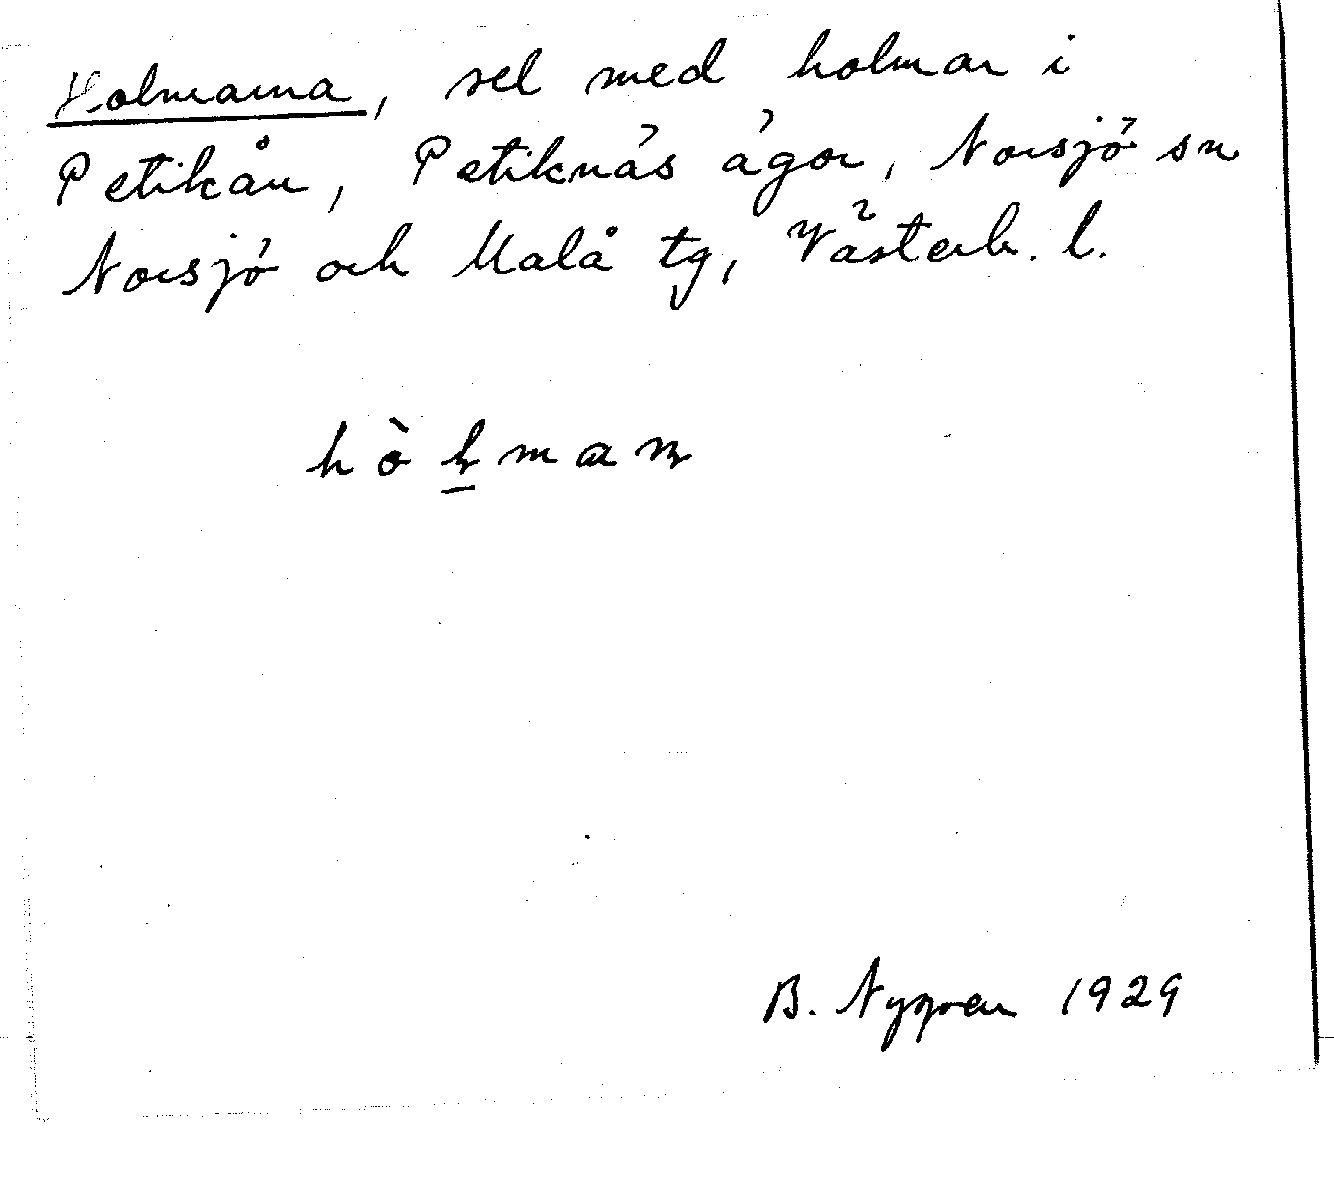 Holmarna, sel med holmar i
Petikån, Petiknäs ägor, Norsjö sn
Norsjö och Malå tg, Västerb. l.
B. Nygren 1929